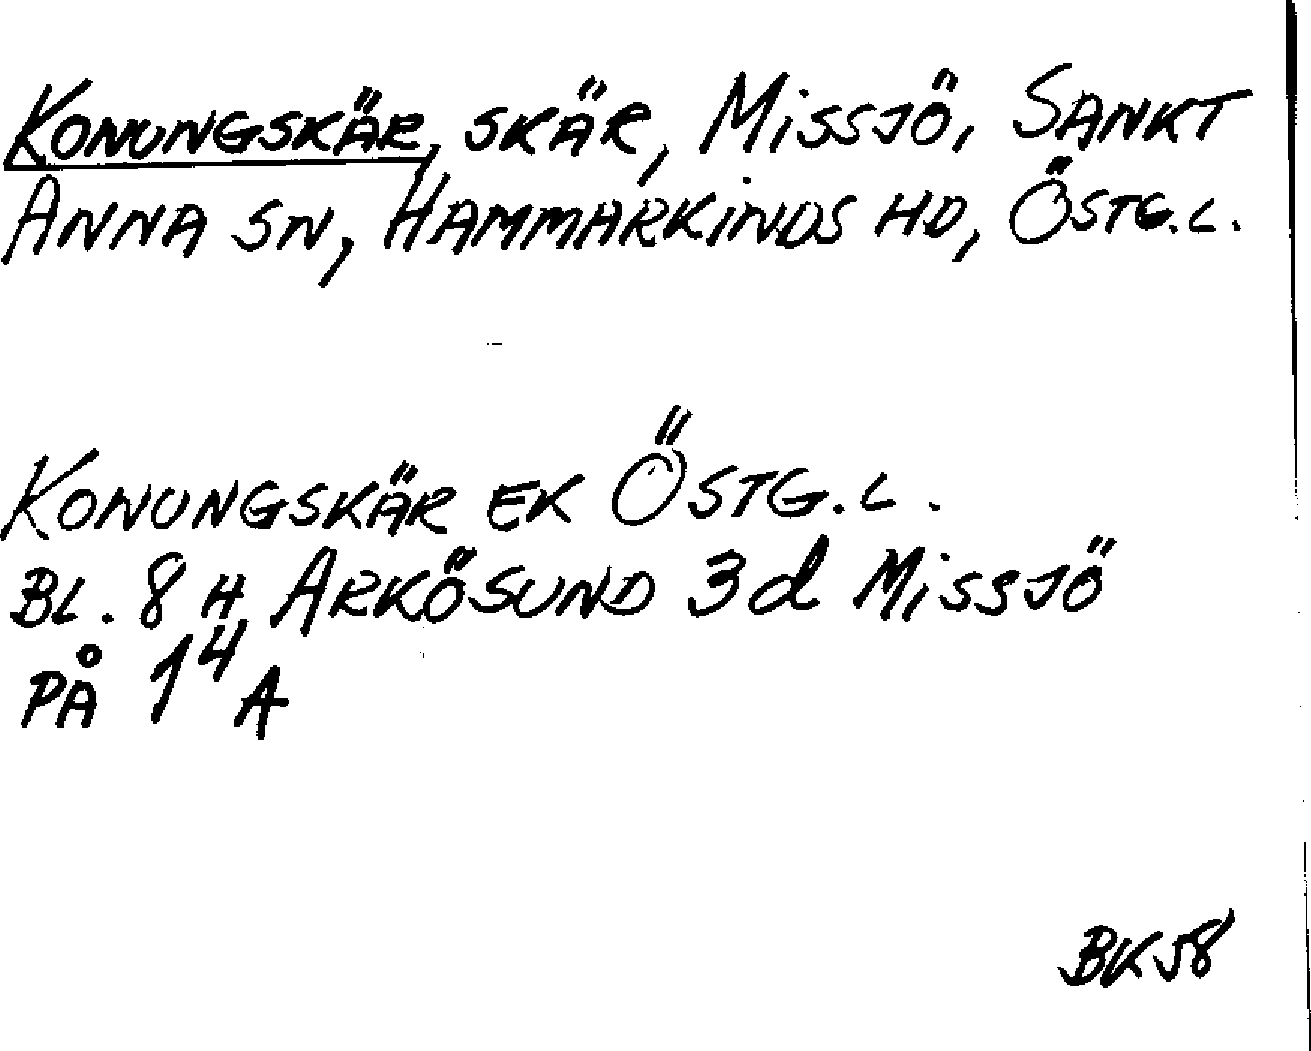 KONUNGSKÄR, SKÄR, MISSJÖ, SANKT
ANNA SN, HAMMARKINDS HD, ÖSTG.L.
KONUNGSKÄR EK ÖSTG.L.
BL. 8 H ARKÖSUND 3d MISSJÖ
PÅ 14 A
BK58